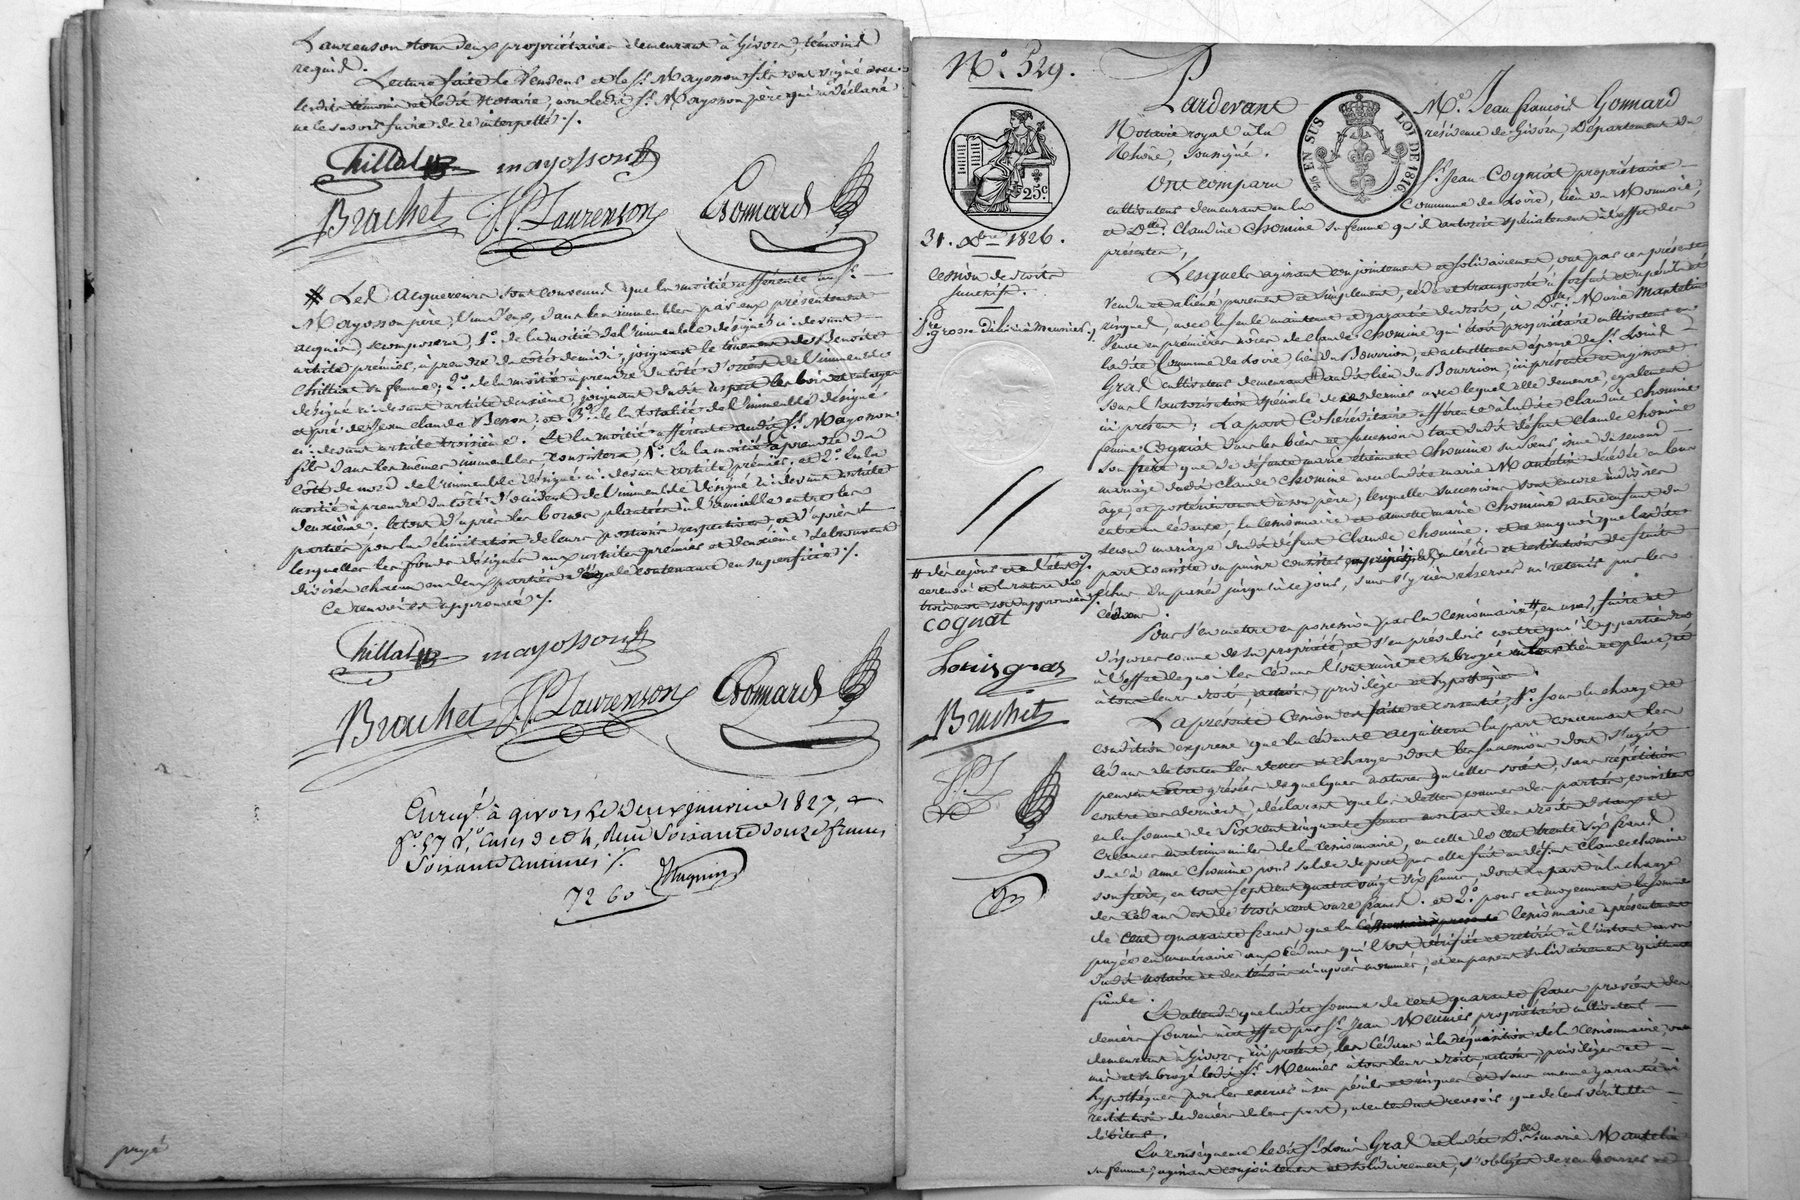 Laurenson tous deux propriétaires demeurant à Givors, témoins
requis.
Lecture faite le Vendeur et le Sr. Mayosson fils ont signé avec
lesdits témoins et ledit Notaire, non ledit Sr. Mayosson père qui a déclaré
ne le savoir faire de ce interpellé ./.
Chillat mayosson fils
Brachet J.P. Laurenson Gonnard
# Les acquereurs sont convenus que la moitié afférente au Sr.
Mayosson père, l'un d'eux, dans les immeubles par eux présentement
acquis, se composera, 1o. de la moitié de l'immeuble désigné ci-devant
article premier, à prendre du côté de midi, joignant le tènement de Benoîte
Chillat sa femme; 2o. de la moitié à prendre du côté d'orient de l'immeuble
désigné ci-devant article deuxième, joignant dudit aspect les bois et
et pré de Jean Claude Veron, et 3o. de la totalité de l'immeuble désigné
ci-devant article troisième. Et la moitié afférente audit Sr. Mayosson
fils dans les mêmes immeubles, consistera, 1o. en la moitié à prendre du
côté de nord de l'immeuble désigné ci-devant article premier, et 2o. en la
moitié à prendre du côté d'occident de l'immeuble désigné ci-devant article
deuxième. le tout d'après les bornes plantées à l'amiable entre les
parties pour la délimitation de leurs portions respectives, et d'après
lesquelles les fonds désignés aux articles premier et deuxième se trouvent
divisés chacun en deux parties d'égale contenance en superficie ./.
Ce renvoi est approuvé ./.
Chillat mayosson fils
Brachet J.P. Laurenson Gonnard
Enregé. à givors le deux janvier 1827,
fo. 57 Vo. Cases 3 et 4, Reçu Soixante douze francs
Soixante centimes ./.
72 60
payé
No. 529.
25c.
31. Xbre 1826.
Cession de droits
successifs.
1re grosse délivrée à Meunier ./.
EN SUS LOI DE 1816
Pardevant Me. Jean françois Gonnard
Notaire royal à la résidence de Givors, Département du
Rhône, soussigné.
Ont comparu Sr. Jean Cognat propriétaire
cultivateur demeurant en la Commune de Loire, lieu du
et Dlle. Claudine Chomine sa femme qu'il autorise spécialement à l'effet des
présentes,
Lesquels agissant conjointement et solidairement ont par ces présentes
vendu et aliéné purement et simplement, cédé et transporté à forfait et à périls et
risques, avec la seule maintenue et garantie de droit, à Dlle. Marie Mantelin
Veuve en premières nôces de Claude Chomine qui était propriétaire cultivateur en
ladite Commune de Loire lieu du Bourrion, et actuellement épouse de Sr. Louis
Gras cultivateur demeurant audit lieu du Bourrion, ici présente et agissant
sous l'autorisation spéciale de ce dernier avec lequel elle demeure, également
ici présent; La part Cohéréditaire afférente à ladite Claudine Chomine
femme Cognat dans les biens et succession tant dudit défunt Claude Chomine
son frère que de défunte marie étiennette Chomine sa soeur née du second
mariage dudit Claude Chomine avec ladite marie Mantelin décédée en bas
age et postérieurement à son père, lesquelles successions sont encore indivises
entre la cédante, la Cessionnaire et annette marie Chomine autre enfant du
second mariage dudit défunt Claude Chomine. et en quoi que ladite
part consiste ou puisse consister en principal, intérêts et restitution de fruits
échus du passé jusqu'à ce jour, sans s'y rien réserver ni retenir par les
cédans.
# dès ce jour et
ce renvoi et la rature de
trois mots sont approuvés ./.
cognat
Louis gras
Brachet
J.P.L
Pour s'en mettre en possession par la cessionnaire #, en user, faire et
disposer comme de sa propriété, et s'en prévaloir contre qui il appartiendra
à l'effet de quoi les cédans l'ont mise et subrogée en leur lieu et place, et
à tous leurs droits, actions, privilèges et hypothèques.
La présente Cession est faite et consentie, 1o. sous la charge et
condition expresse que la cédante acquittera la part concernant les
cédans de toutes les dettes et charges dont les successions dont s'agit
peuvent être grévées de quelques natures qu'elles soient, sans répétition
contre ces derniers, déclarant que les dettes connues des parties consistent
en la somme de Six cent cinquante francs montant des droits dotaux et
créances matrimoniales de la cessionnaire, en celle de cent trente six francs
due à Anne Chomine pour solde de prêt par elle fait au défunt Claude Chomine
son frère, en tout sept cent quatre vingt six francs, dont la part à la charge
des cédans est de trois cent onze francs. et 2o. pour et moyennant la somme
de cent quarante francs que la cessionnaire a présentement
payée en numéraire aux cédans qui l'ont vérifiée et retirée à l'instant au vu
dudit notaire et des témoins ci après nommés, et en passent solidairement quittance
finale.
Et attendu que ladite somme de cent quarante francs provient des
deniers fournis à cet effet par Sr. Jean Meunier propriétaire cultivateur
demeurant à Givors, ici présent, les cédans à la réquisition de la cessionnaire, ont
mis et subrogé ledit Sr. Meunier à tous leurs droits, actions, privilèges et
hypothèques pour les exercer à ses périls et risques et sans aucune garantie ni
restitution de deniers de leur part, n'entendant recevoir que de leurs véritables
débiteurs.
En conséquence ledit Sr. Louis Gras et ladite Dlle. marie Mantelin
sa femme, agissant conjointement et solidairement, s'obligent de rembourser